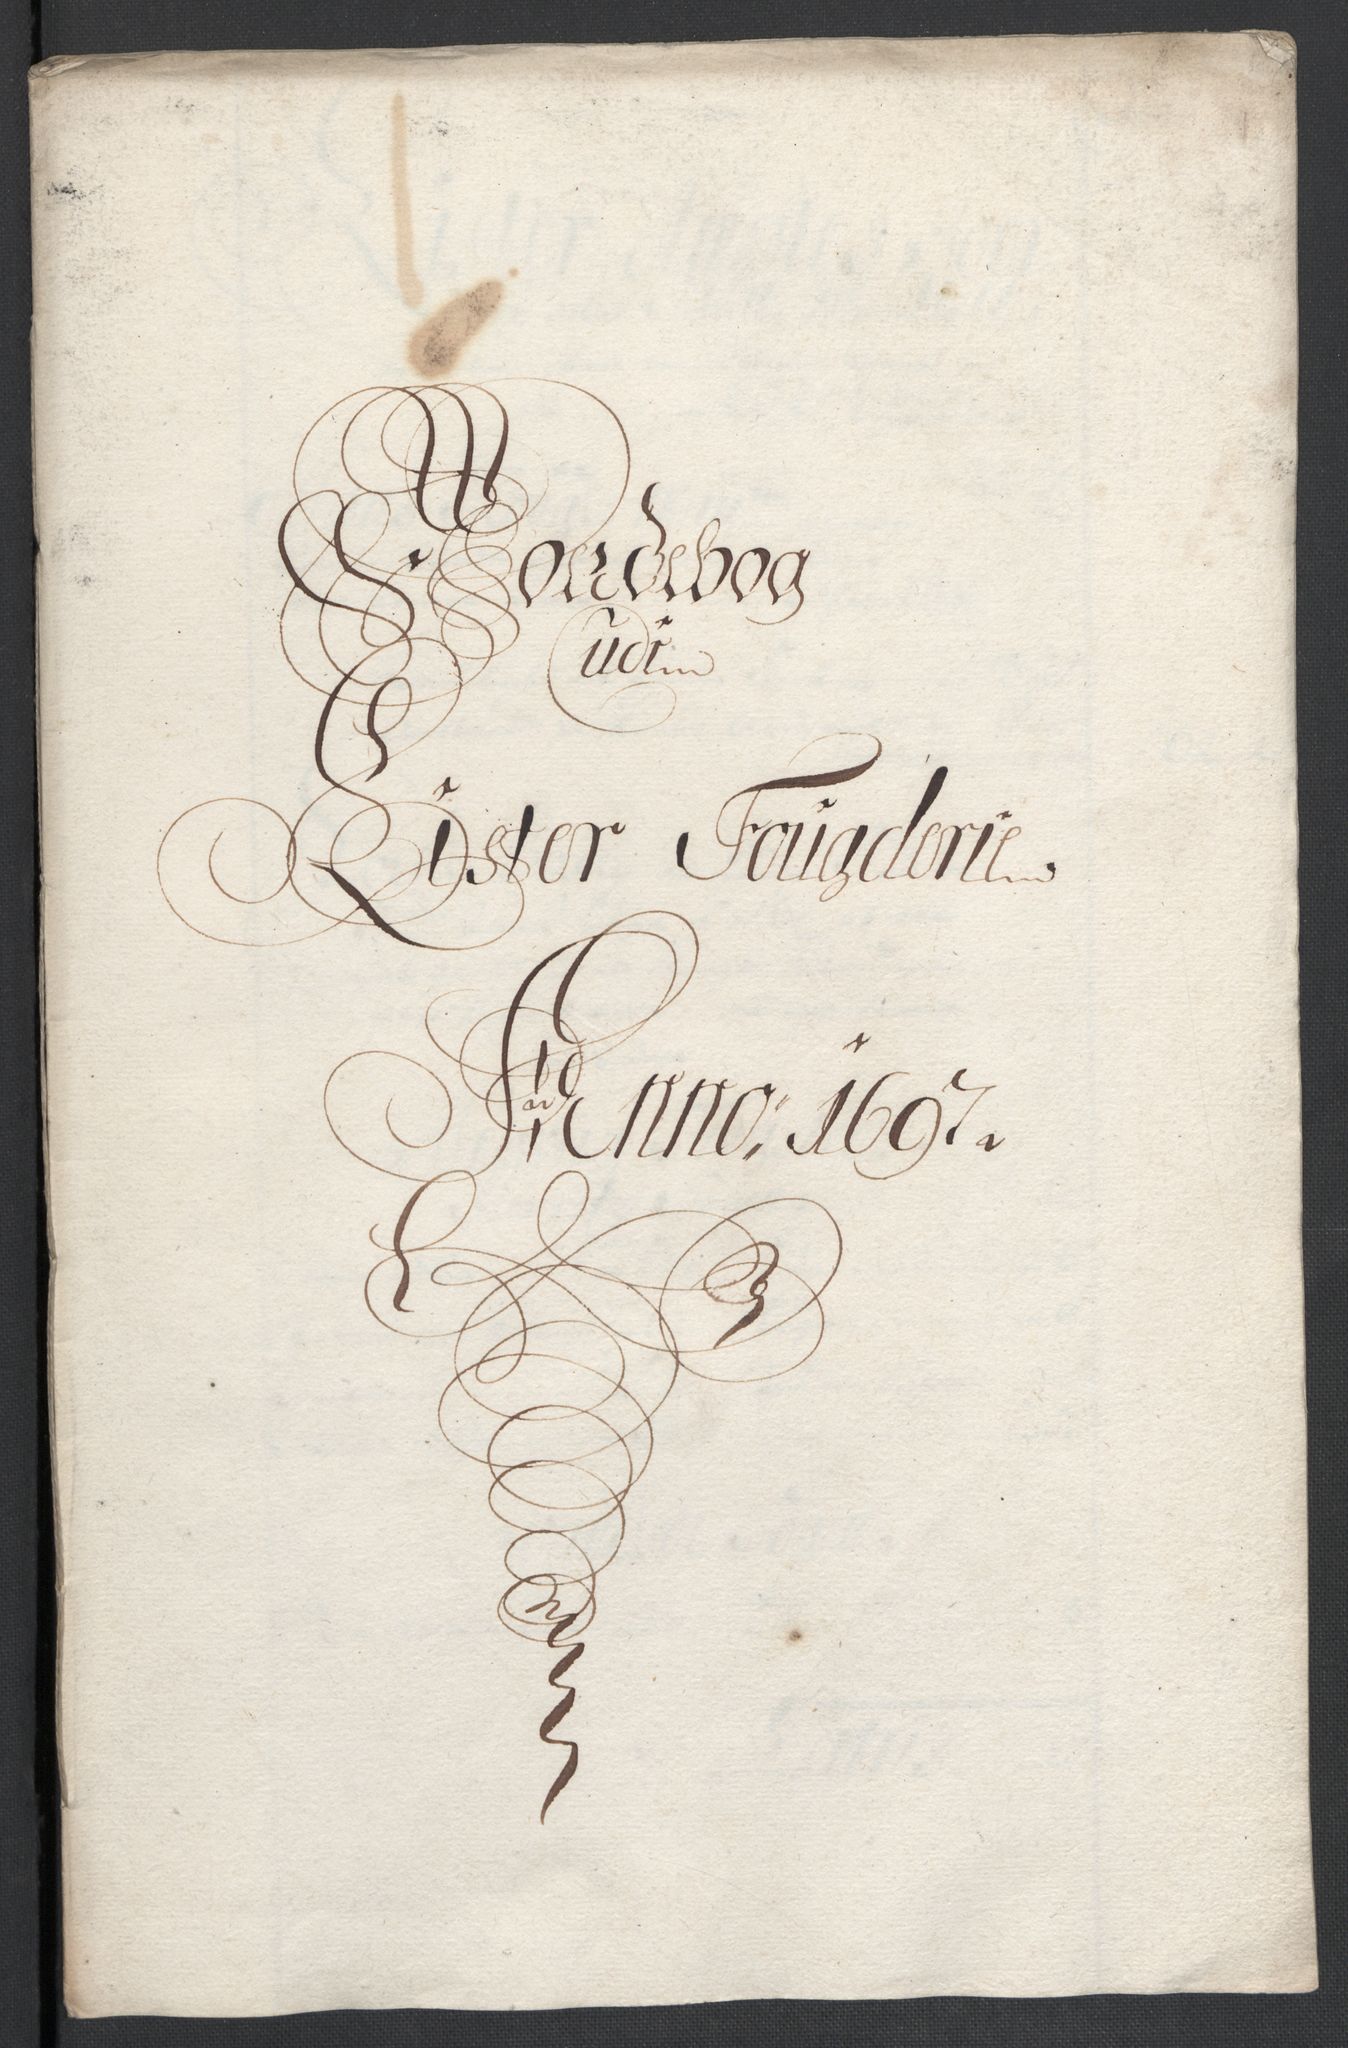 Jordebog
udi
Lister Fougderie
Anno: 1697.